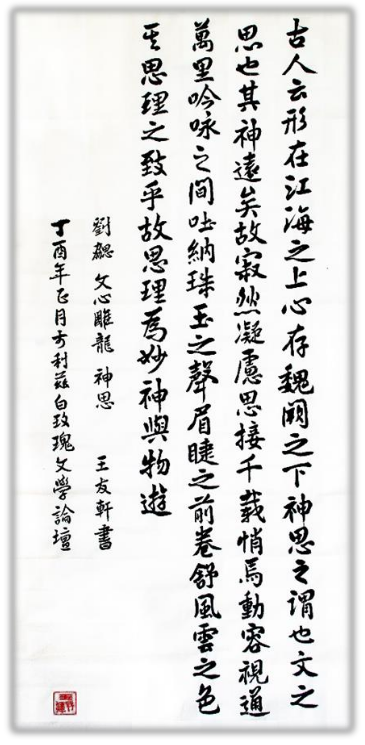 古人云形在江海之上心存魏闕之下神思之謂也文之
思也其神遠矣故寂然凝慮思接千載悄焉動容視通
萬里吟咏之間吐納珠玉之聲眉睫之前卷舒風雲之色
其思理之致乎故思理為妙神與物遊
劉勰 文心雕龍 神思 王友軒書
丁酉年正月于利兹白玫瑰文學論壇